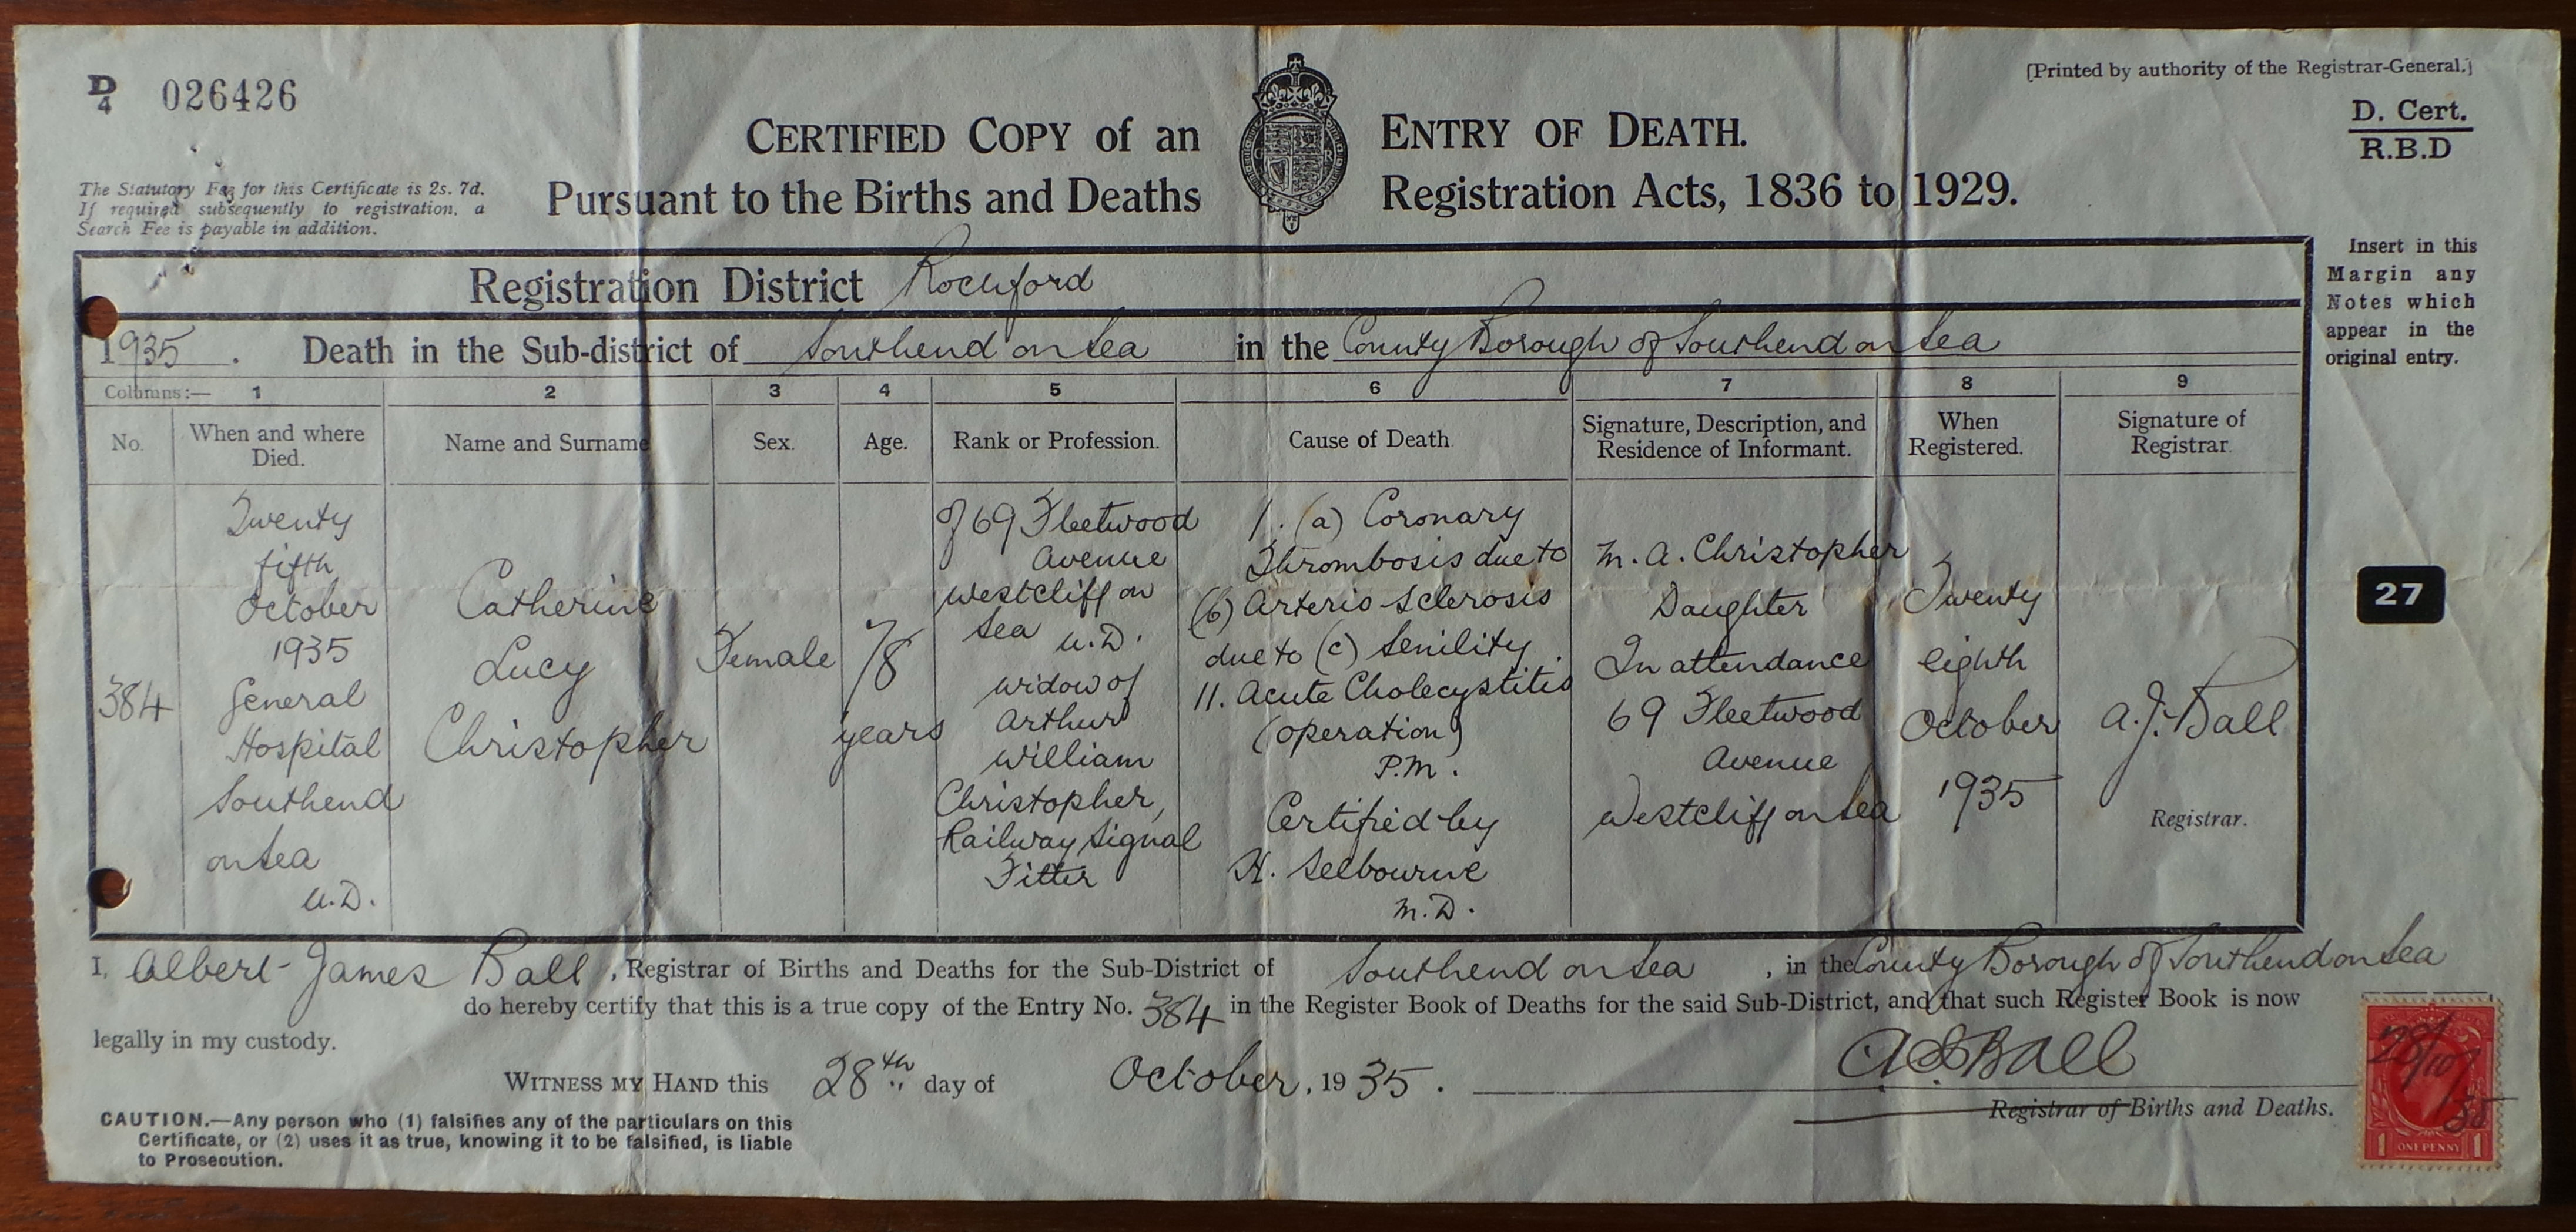 D/4 026426
[Printed by authority of the Registrar-General.]
D. Cert.
R.B.D
CERTIFIED COPY of an ENTRY OF DEATH.
Pursuant to the Births and Deaths Registration Acts, 1836 to 1929.
The Statutory Fee for this Certificate is 2s. 7d.
If required subsequently to registration, a
Search Fee is payable in addition.
Insert in this
Margin any
Notes which
appear in the
original entry.
Registration District Rochford
1935. Death in the Sub-district of Southend on Sea in the County Borough of Southend on Sea
Columns:— 1 2 3 4 5 6 7 8 9
No.
When and where
Died.
Name and Surname
Sex.
Age.
Rank or Profession.
Cause of Death.
Signature, Description, and
Residence of Informant.
When
Registered.
Signature of
Registrar.
384
Twenty
fifth
October
1935
General
Hospital
Southend
on Sea
U.D.
Catherine
Lucy
Christopher
Female
78
years
of 69 Fleetwood
Avenue
Westcliff on
Sea U.D.
widow of
Arthur
William
Christopher,
Railway Signal
Fitter
1. (a) Coronary
Thrombosis due to
(b) Arterio Sclerosis
due to (c) Senility.
11. Acute Cholecystitis
(operation)
P.M.
Certified by
H. Selbourne
M.D.
M. A. Christopher
Daughter
In attendance
69 Fleetwood
Avenue
Westcliff on Sea
Twenty
eighth
October
1935
A.J. Ball
Registrar.
27
I, Albert James Ball, Registrar of Births and Deaths for the Sub-District of Southend on Sea, in the County Borough of Southend on Sea
do hereby certify that this is a true copy of the Entry No. 384 in the Register Book of Deaths for the said Sub-District, and that such Register Book is now
legally in my custody.
WITNESS MY HAND this 28th day of October, 1935.
A J Ball
Registrar of Births and Deaths.
CAUTION.—Any person who (1) falsifies any of the particulars on this
Certificate, or (2) uses it as true, knowing it to be falsified, is liable
to Prosecution.
28/10/35
1 ONE PENNY 1